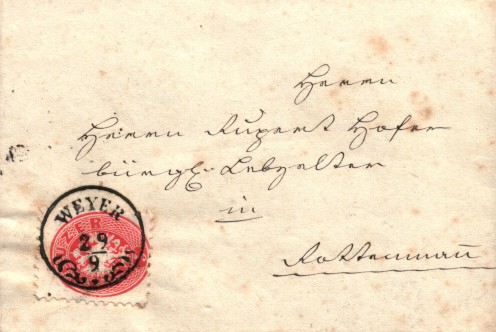 Herrn
Herrn Rupert Hofer
bürgl. Lebzelter
in
Rottenmann
WEYER
29
9
KREUZER